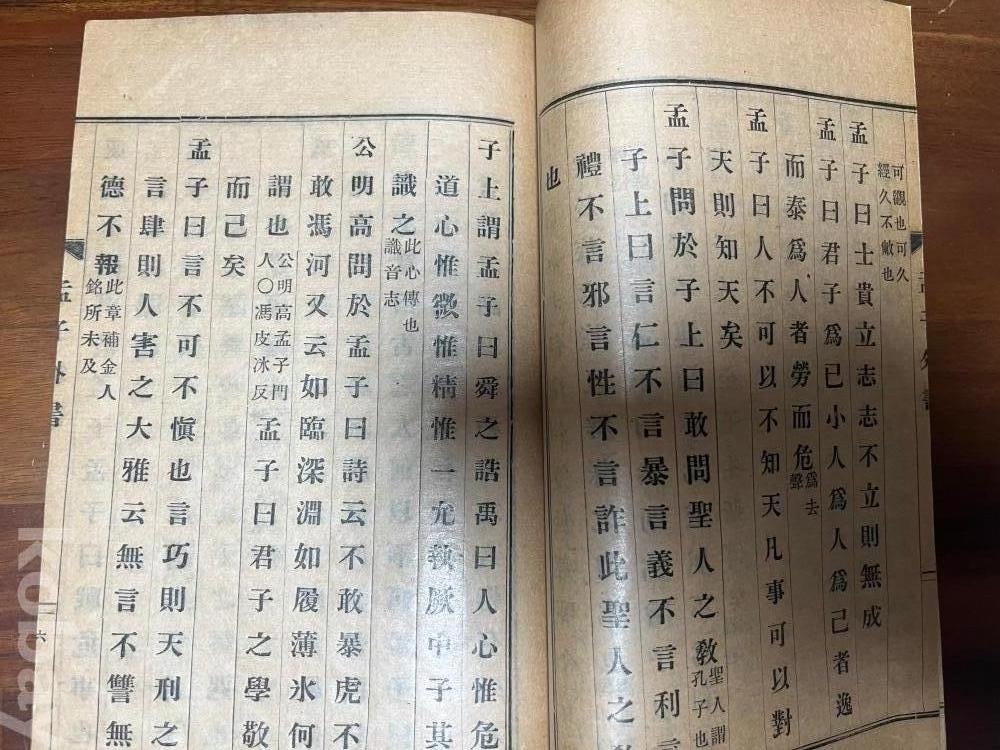 可觀也可久
經久不敝也
孟子曰士貴立志志不立則無成
孟子曰君子爲已小人爲人爲己者逸
而泰爲人者勞而危爲去聲
孟子曰人不可以不知天凡事可以對
天則知天矣
孟子問於子上曰敢問聖人之敎聖人謂孔子也
子上曰言仁不言暴言義不言利言
禮不言邪言性不言詐此聖人之
也
子上謂孟子曰舜之誥禹曰人心惟危
道心惟微惟精惟一允執厥中子其
識之此心傳也識音志
公明高問於孟子曰詩云不敢暴虎不
敢馮河又云如臨深淵如履薄氷何
謂也公明高孟子門人〇馮皮冰反孟子曰君子之學敬
而己矣
孟子曰言不可不愼也言巧則天刑之
言肆則人害之大雅云無言不讐無
德不報此章補金人銘所未及
孟子外書
六
Kobay